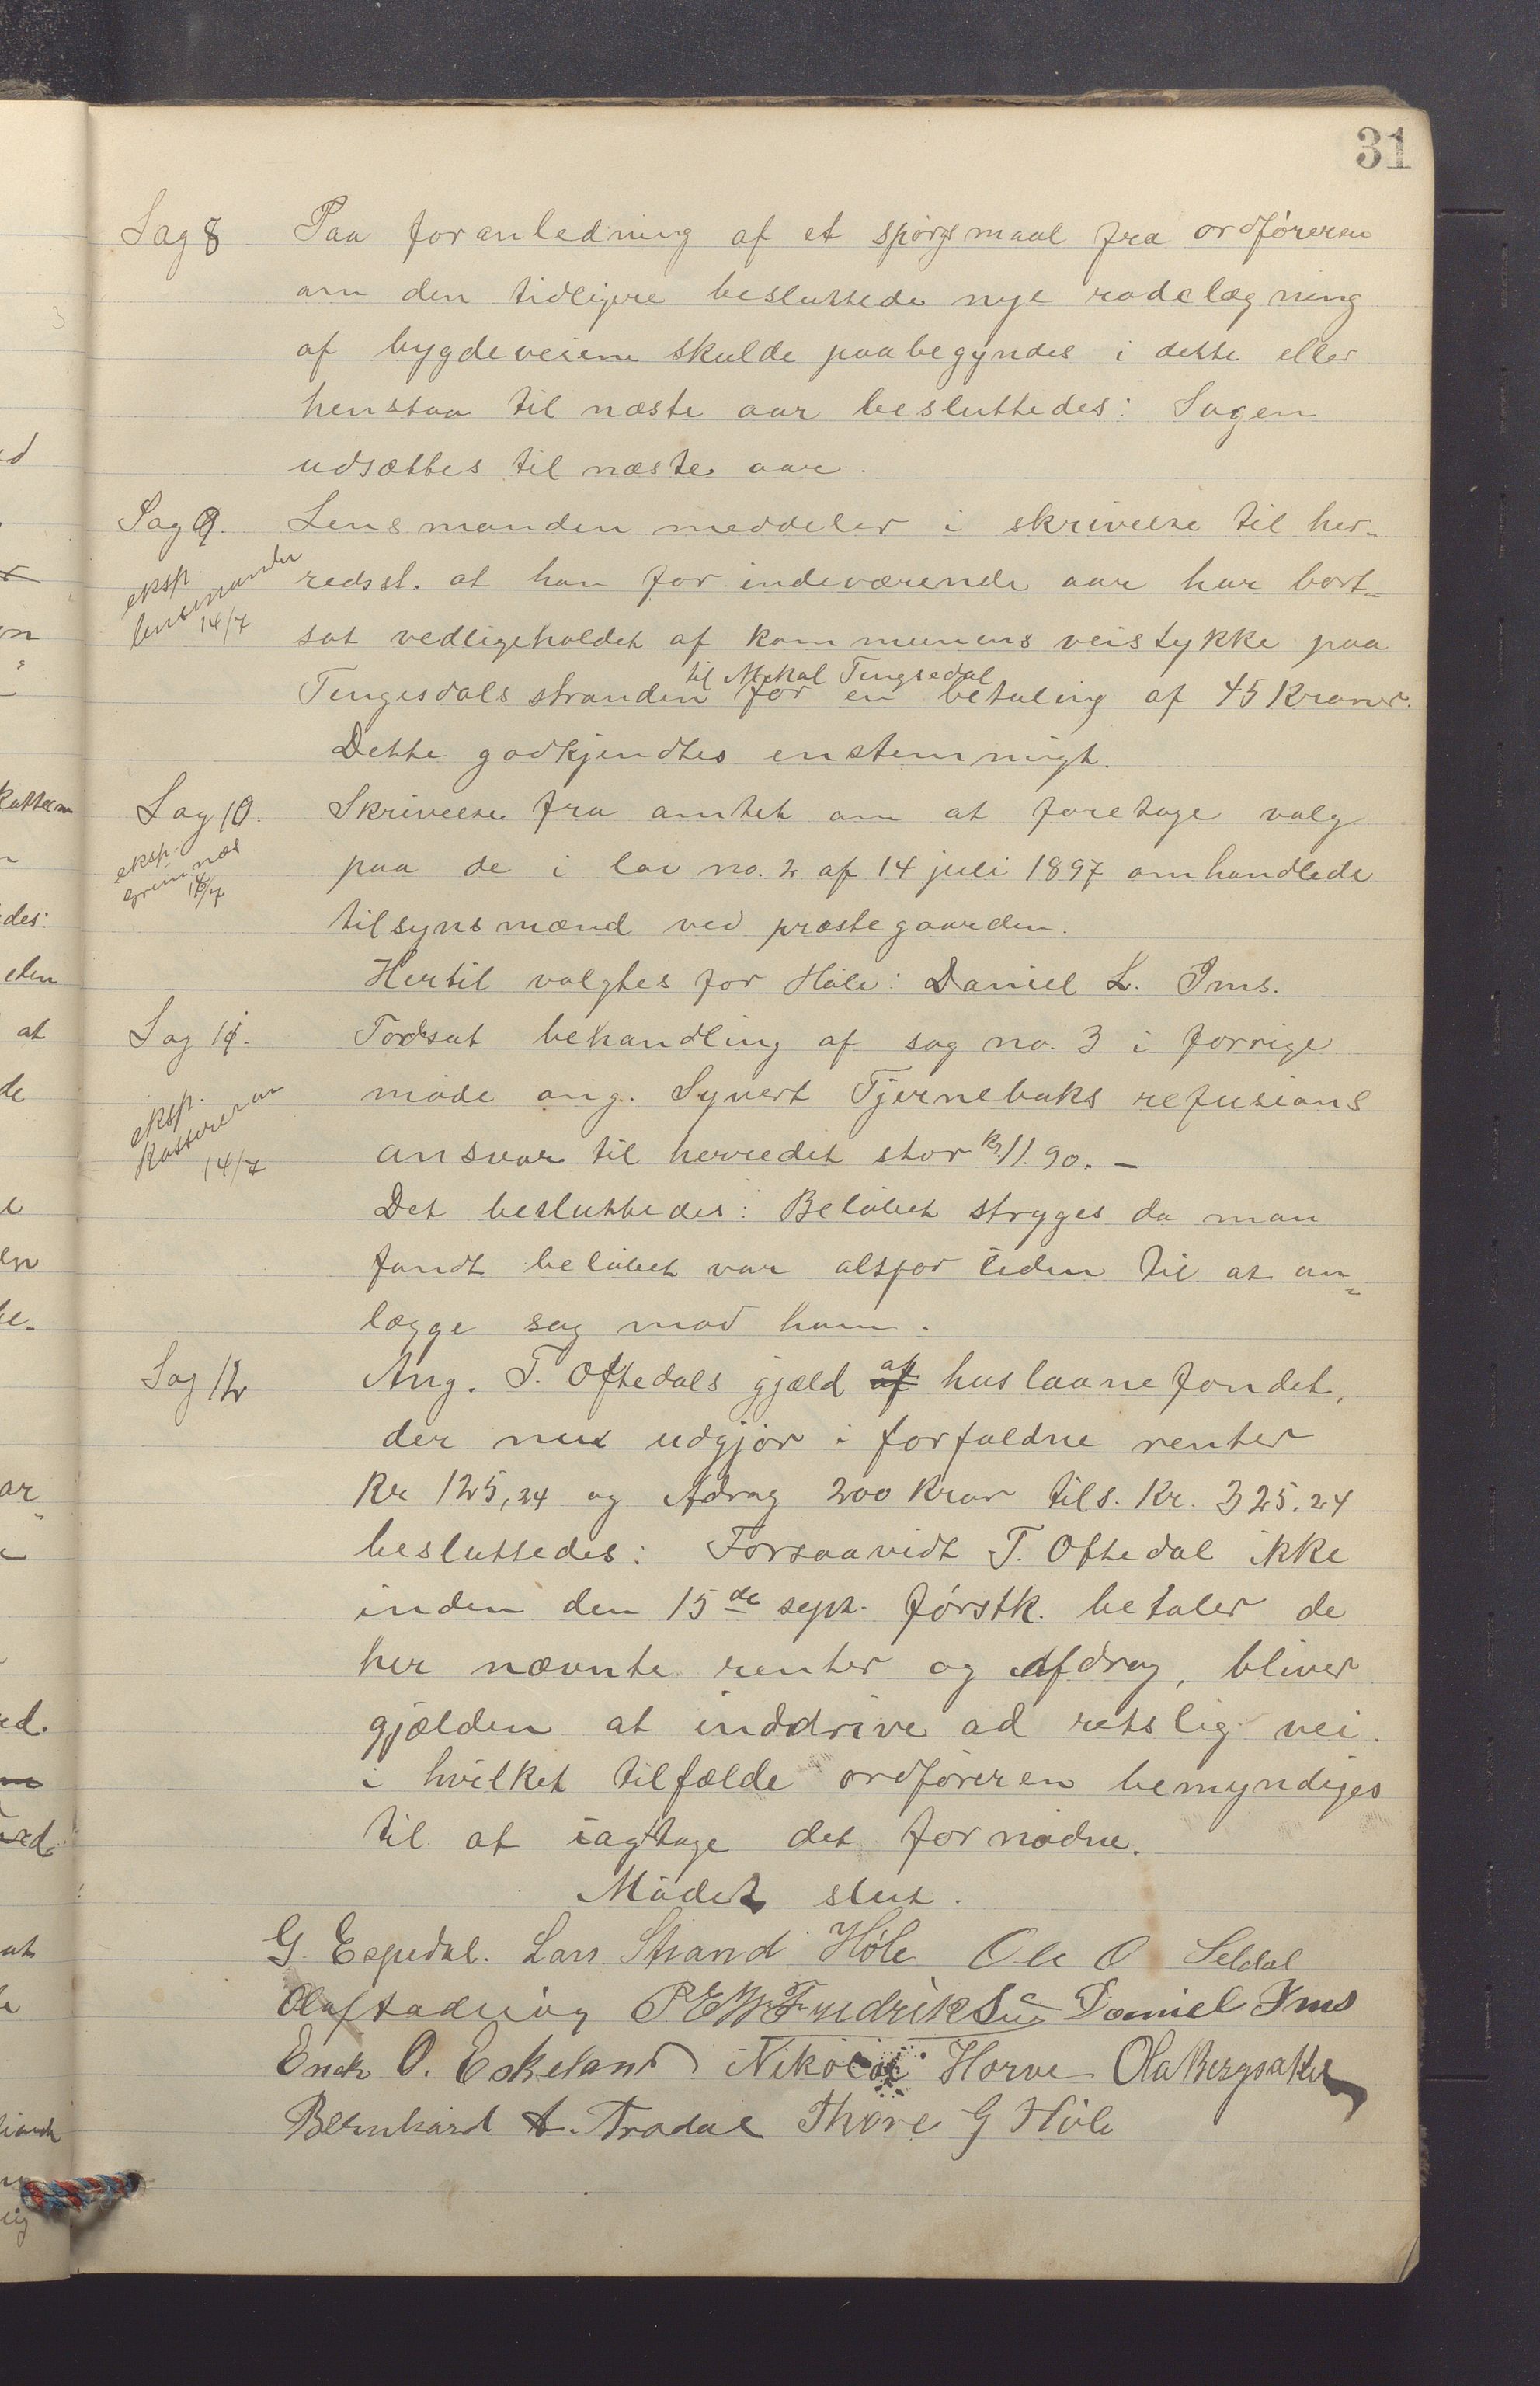 31
Sag 8 Paa foranledning af et spørgsmaal fra ordføreren
om den tidligere besluttede nye rodelægning
af bygdeveiene skulde paabegyndes i dette eller
henstaa til næste aar besluttedes: Sagen
udsættes til næste aar.
Sag 9. Lensmanden meddeler i skrivelse til her-
eksp. lensmanden 14/7
redsst. at han for indeværende aar har bort-
sat vedligeholdet af kommunens veistykke paa
til Mikal Tengesdal
Tengesdalsstranden for en betaling af 45 Kroner.
Dette godkjendtes enstemmigt.
Sag 10. Skrivelse fra amtet om at foretage valg
eksp. 14/7
paa de i lov no. 2 af 14 juli 1897 omhandlede
tilsynsmænd ved præstegaarden.
Hertil valgtes for Høle: Daniel L. Ims.
Sag 11. Fodsat behandling af sag no. 3 i forrige
eksp. Kassereren 14/7
møde ang. Syvert Tjernebaks refusions
ansvar til herredet stor kr. 11.90. –
Det besluttedes: Beløbet stryges da man
fandt beløbet var altfor liden til at an-
lægge sag mod ham.
Sag 12 Ang. T. Oftedals gjæld af huslaanefondet,
der nu udgjør i forfaldne renter
Kr 125,24 og Adrag 200 Kroner tils. Kr. 325.24
besluttedes: Forsaavidt T. Oftedal ikke
inden den 15de sept. førstk. betaler de
her nævnte renter og Afdrag, bliver
gjælden at inddrive ad retslig vei.
i hvilket tilfælde ordføreren bemyndiges
til at iagttage det fornødne.
Mødet slut.
G. Espedal. Lars Strand Høle Ole O Seldal
P E Fredriksen Daniel Ims
O. Eskeland Nikolai Horve Ola Bergsaker
Bernhard A. Tradal Thore G Høle